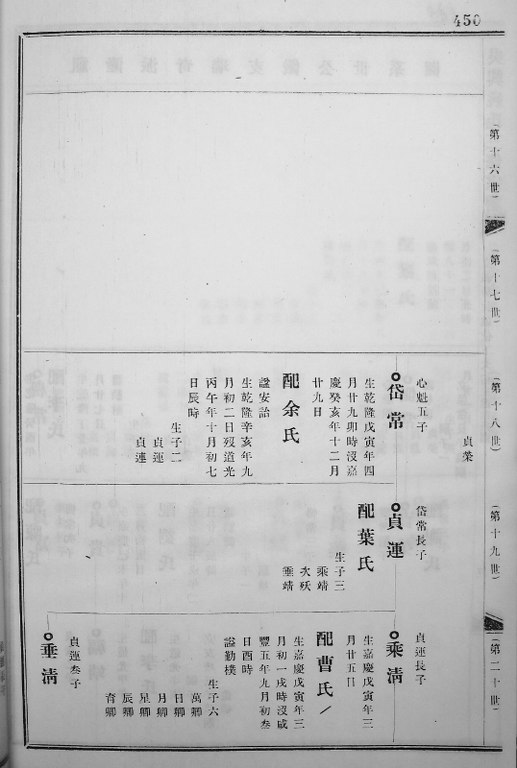 450
(第十六世)
(第十七世)
(第十八世)
(第十九世)
(第二十世)
貞榮
心魁五子
岱常
生乾隆戊寅年四
月廿九卯時沒嘉
慶癸亥年十二月
廿九日
配余氏
諡安詒
生乾隆辛亥年九
月初二日歿道光
丙午年十月初七
日辰時
生子二
貞運
貞連
岱常長子
貞運
配葉氏
生子三
乘靖
次殀
垂靖
貞運長子
乘清
生嘉慶戊寅年三
月廿五日
配曹氏
生嘉慶戊寅年三
月初一戌時沒咸
豐五年九月初叁
日酉時
諡勤樸
生子六
萬卿
日卿
月卿
星卿
辰卿
育卿
貞運叁子
垂清